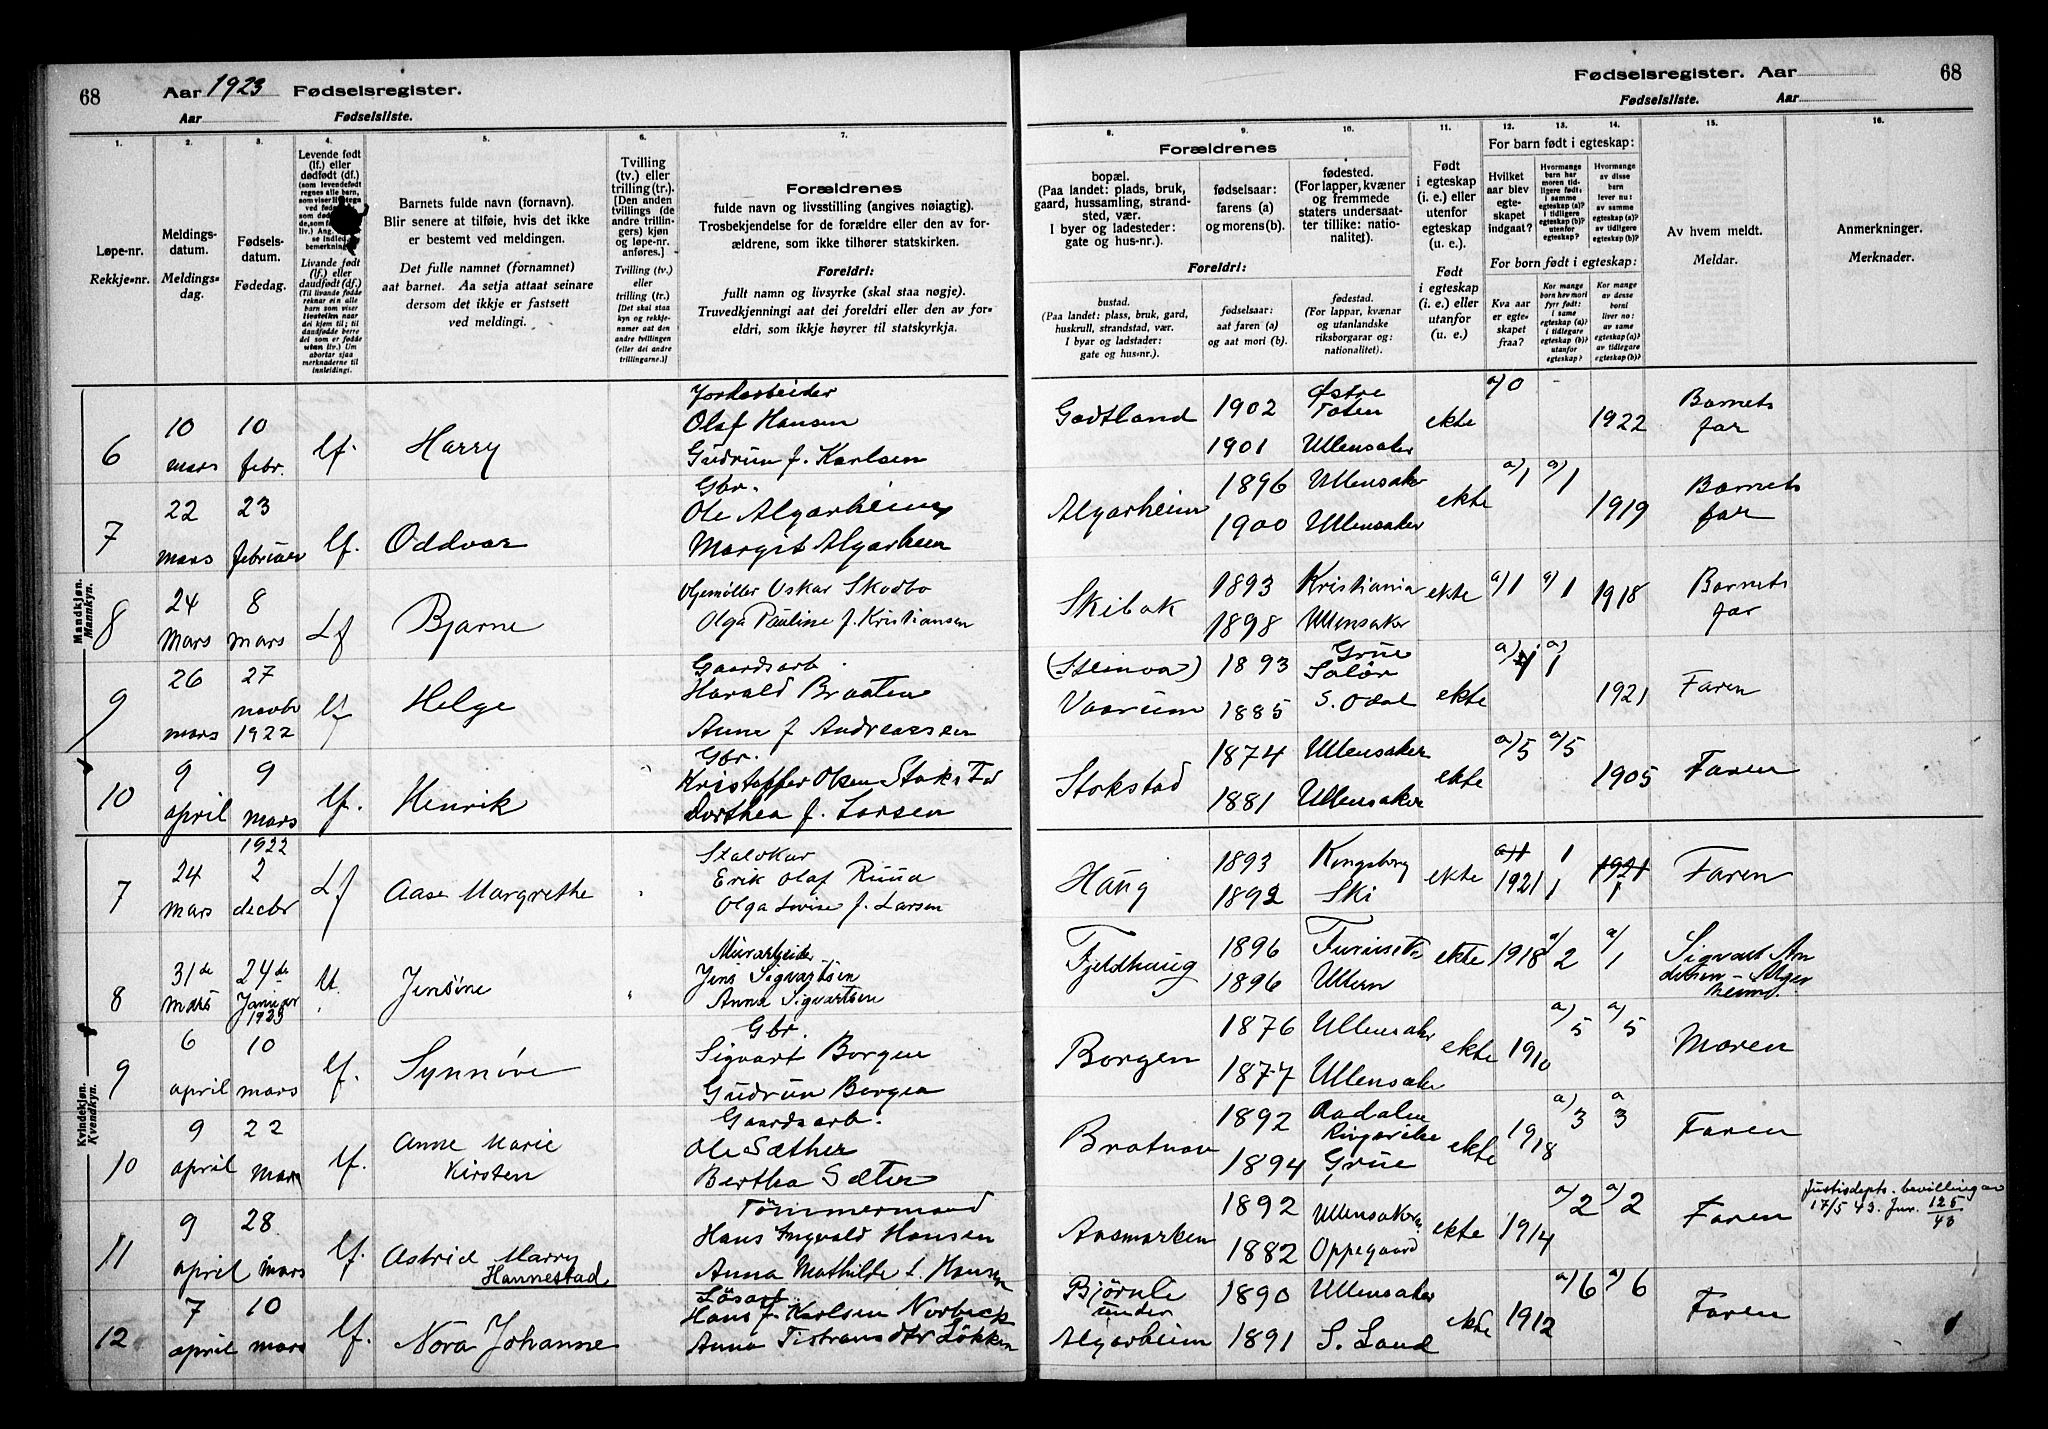 68
Aar 1923 Fødselsregister.
Aar Fødselsliste.
1. 2. 3. 4. 5. 6. 7.
Løpe-nr.
Rekkje-nr.
Meldings-
datum.
Meldings-
dag.
Fødsels-
datum.
Fødedag.
Levende født
(lf.) eller
dødfødt (df.)
Livande født
(lf.) eller
daudfødt (df.)
Barnets fulde navn (fornavn).
Blir senere at tilføie, hvis det ikke
er bestemt ved meldingen.
Det fulle namnet (fornamnet)
aat barnet. Aa setja attaat seinare
dersom det ikkje er fastsett
ved meldingi.
Tvilling
(tv.) eller
trilling (tr.).
[Den anden
tvillings (de
andre trillin-
gers) kjøn
og løpe-nr.
anføres.]
Tvilling (tv.)
eller
trilling (tr.)
[Det skal staa
kyn og rekkje-
numer aat den
andre tvillingen
(eller dei andre
trillingarne.)]
Forældrenes
fulde navn og livsstilling (angives nøiagtig).
Trosbekjendelse for de forældre eller den av for-
ældrene, som ikke tilhører statskirken.
Foreldri:
fullt namn og livsyrke (skal staa nøgje).
Truvedkjenningi aat dei foreldri eller den av for-
eldri, som ikkje høyrer til statskyrkja.
Mandkjøn.
Mannkyn.
6 10 mars 10 febr. lf. Harry
Jordarbeider
Olaf Hansen
Gudrun f. Karlsen
7 22 mars 23 februar lf. Oddvar
Gbr.
Ole Algarheim
Margit Algarheim
8 24 Mars 8 mars Lf Bjarne
Oljemøller Oskar Skodbo
Olga Pauline f. Kristiansen
9 26 mars 27 novbr 1922 lf Helge
Gaardsarb.
Harald Braaten
Anne f Andreassen
10 9 april 9 mars lf. Henrik
Gbr.
Kristoffer Olsen Stokstad
Dorthea f. Larsen
Kvindekjøn.
Kvendkyn.
7 24 Mars 1922 2 decbr Lf Aase Margrethe
Staldkar
Erik Olaf Ruud
Olga Lovise f. Larsen
8 31de mars 24de Januar 1923 lf. Jensine
Murarbeider
Jens Sigvartsen
Anna Sigvartsen
9 6 april 10 mars lf. Synnøve
Gbr.
Sigvart Borgen
Gudrun Borgen
10 9 april 22 mars lf. Anne Marie
Kirsten
Gaardsarb.
Ole Sæther
Bertha Sæter
11 9 april 28 mars lf. Astrid Marry
Hannestad
Tömmermand
Hans Ingvald Hansen
Anna Mathilde f. Hansen
12 7 april 10 mars lf. Nora Johanne
Lösarb.
Hans f. Karlsen Norbeck
Anna Tistransdtr Lökken
Fødselsregister. Aar 68
Fødselsliste. Aar
8. 9. 10. 11. 12. 13. 14. 15. 16.
Forældrenes
bopæl.
(Paa landet: plads, bruk,
gaard, hussamling, strand-
sted, vær.
I byer og ladesteder:
gate og hus-nr.).
fødselsaar:
farens (a)
og morens (b).
fødested.
(For lapper, kvæner
og fremmede
staters undersaat-
ter tillike: natio-
nalitet).
Foreldri:
bustad.
(Paa landet: plass, bruk, gard,
huskrull, strandstad, vær.
I byar og ladstader:
gate og hus-nr.).
fødselsaar:
aat faren (a)
og aat mori (b).
fødestad.
(For lappar, kvænar
og utanlandske
riksborgarar og:
nationalitet).
Født
i egteskap
(i. e.) eller
utenfor
egteskap
(u. e.).
Født
i egteskap
(i. e.) eller
utanfor
(u. e.).
For barn født i egteskap:
Hvilket
aar blev
egte-
skapet
indgaat?
Hvormange
barn har
moren tid-
ligere født:
i samme
egteskap (a)?
i tidligere
egteskap (b)?
utenfor
egteskap?
Hvormange
av disse
barn
lever nu:
av samme
egteskap (a)?
av tidligere
egteskap (b)?
For born født i egteskap:
Kva aar
er egte-
skapet
fraa?
Kor mange
born hev mori
fyrr født:
i same
egteskap (a)?
i tidlegare
egteskap (b)?
utanfor
egteskap?
Kor mange
av desse
borni
liver no:
av same
egteskap (a)?
av tidlegare
egteskap (b)?
Av hvem meldt.
Meldar.
Anmerkninger.
Merknader.
Godtland 1902 Østre Toten
1901 Ullensaker ekte a/0 - 1922 Barnets far
Algarheim 1896 Ullensaker
1900 Ullensaker ekte a/1 a/1 1919 Barnets far
Skibak 1893 Kristiania
1898 Ullensaker ekte a/1 a/1 1918 Barnets far
(Steinva) Vaarum 1893 Grue Solör
1885 S. Odal ekte a/1 a/1 1921 Faren
Stokstad 1874 Ullensaker
1881 Ullensaker ekte a/5 a/5 1905 Faren
Haug 1893 Kongsberg
1892 Ski ekte a)1 1921 1 1 1921 1 Faren
Fjeldhaug 1896 Furuset
1896 Ullern ekte 1918 a/2 a/1 Sigvart
Borgen 1876 Ullensaker
1877 Ullensaker ekte 1910 a/5 a/5 Moren
Bratnov 1892 Aadalen Ringerike
1894 Grue ekte 1918 a/3 a 3 Faren
Aasmarken 1892 Ullensaker
1882 Oppegaard ekte 1914 a/2 a/2 Faren Justisdepts. bevilling av
17/5 43. Jnr. 125/43
Bjørnle under Algarheim 1890 Ullensaker
1891 S. Land ekte 1912 a/6 a/6 Faren